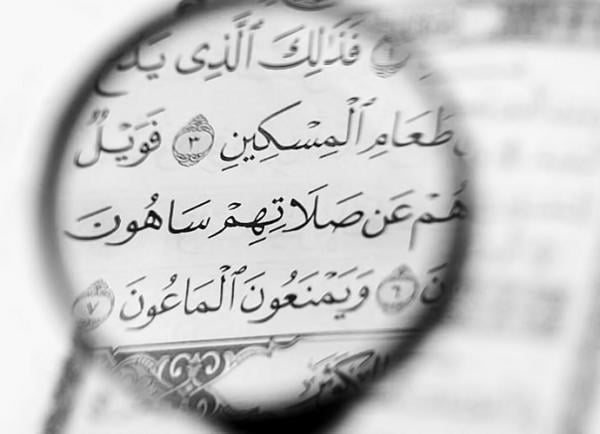 فَذَٰلِكَ ٱلَّذِى يَدُعُّ
طَعَامِ ٱلْمِسْكِينِ ٣ فَوَيْلٌ
هُمْ عَن صَلَاتِهِمْ سَاهُونَ
نَ ٦ وَيَمْنَعُونَ ٱلْمَاعُونَ ٧